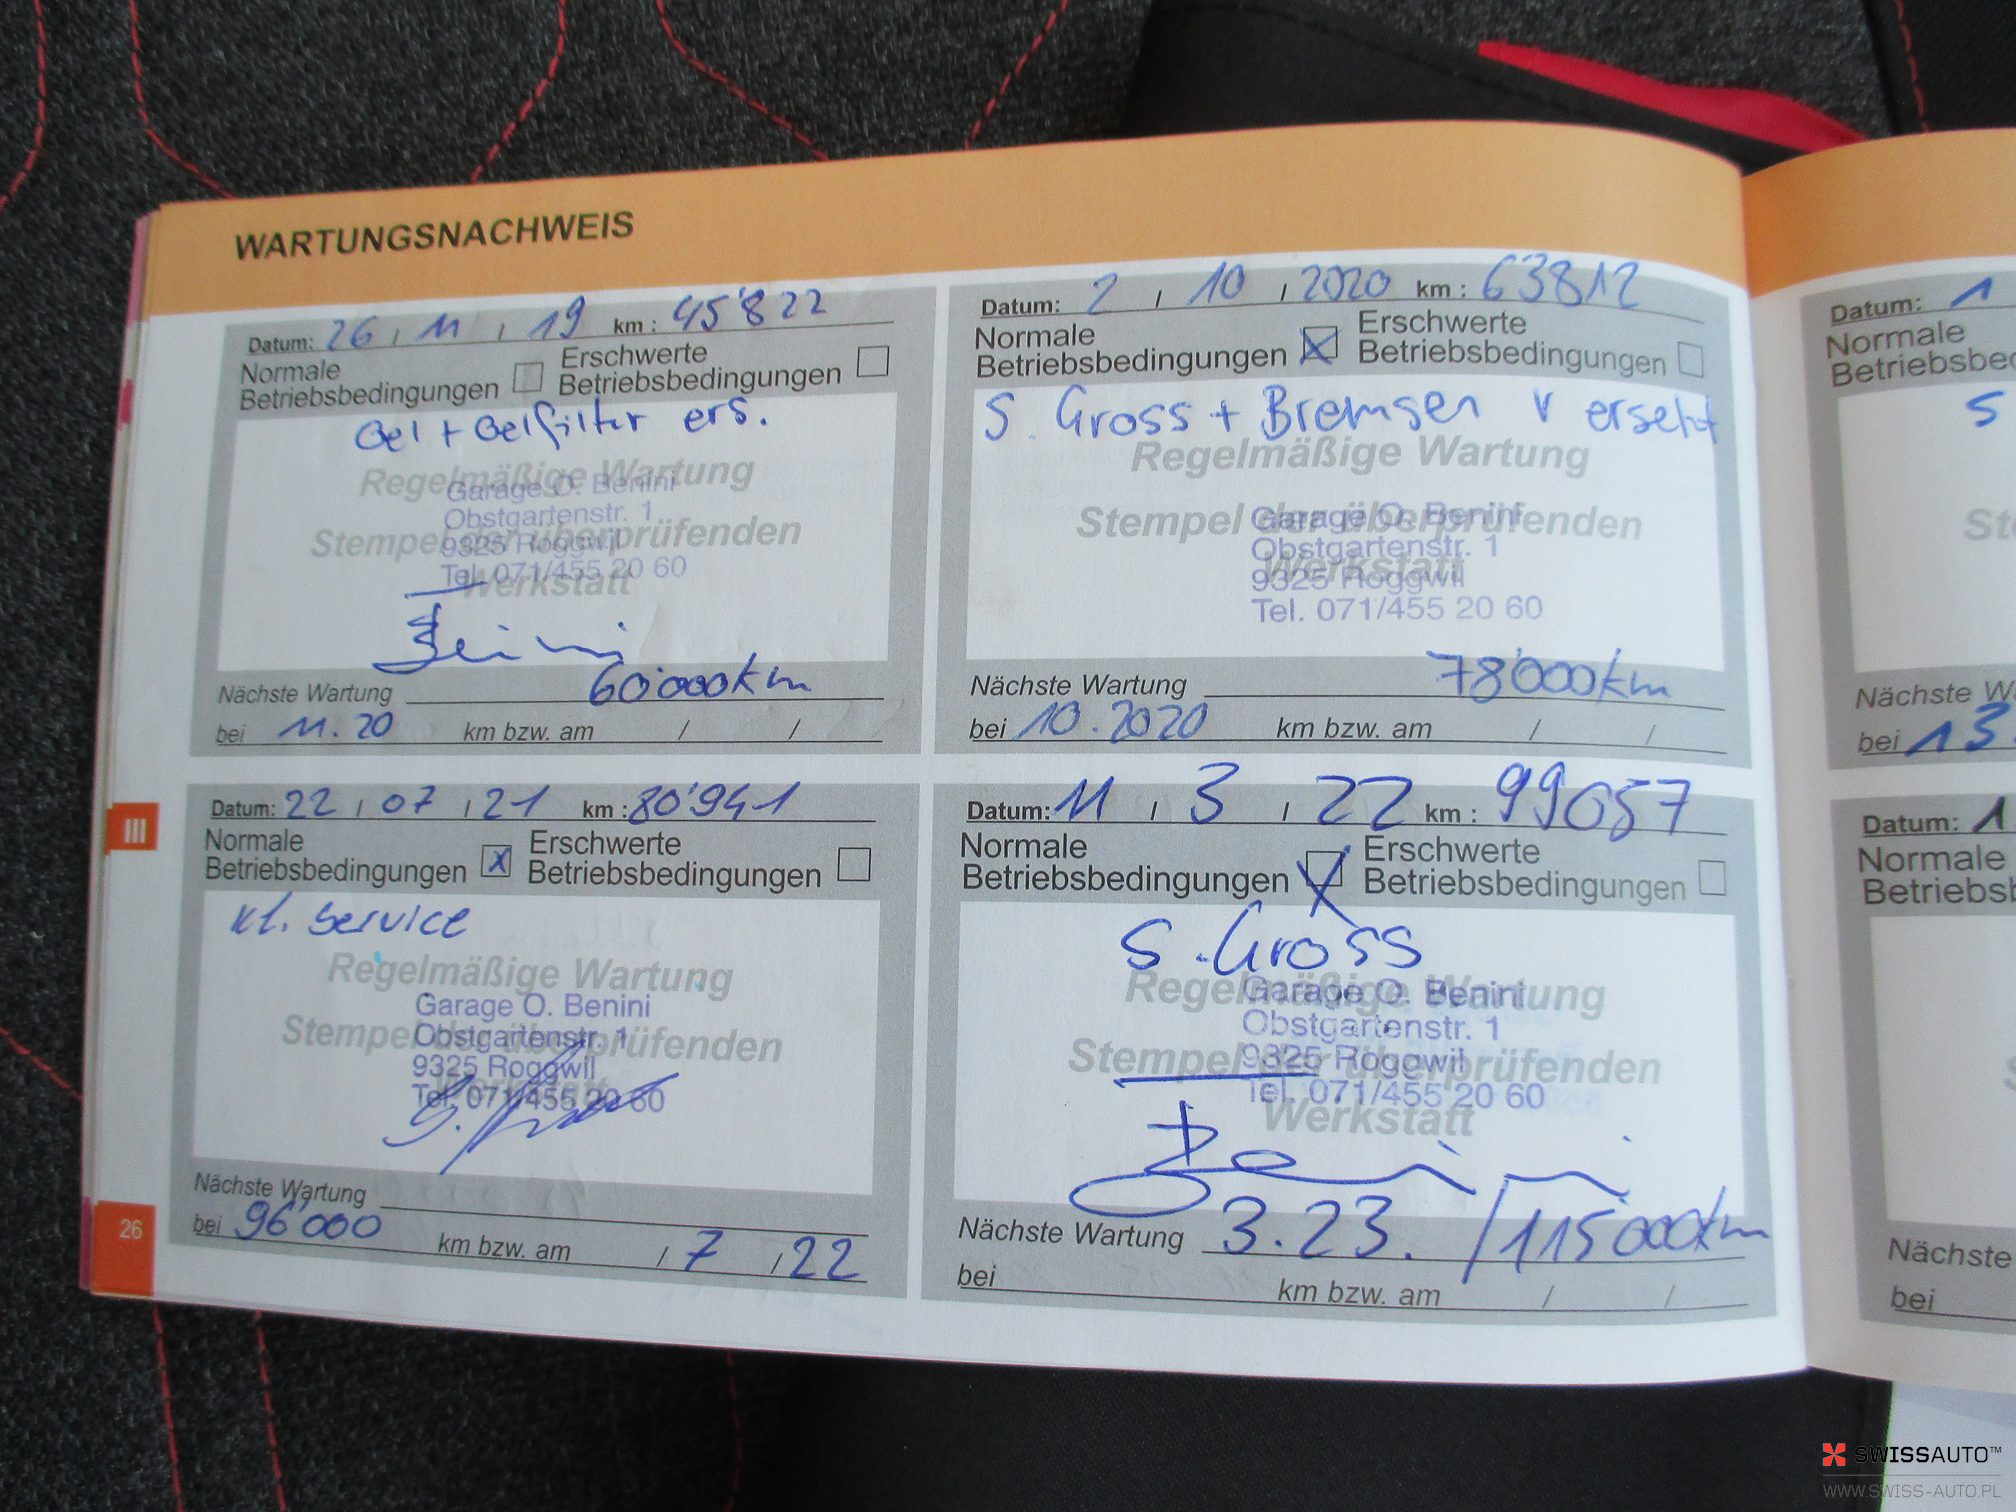 WARTUNGSNACHWEIS
Datum: 26 / 11 / 19 km : 45'822
Normale
Betriebsbedingungen
Erschwerte
Betriebsbedingungen
Oel + Oelfilter ers.
Regelmäßige Wartung
Stempel der überprüfenden
Werkstatt
Garage O. Benini
Obstgartenstr. 1
9325 Roggwil
Tel. 071/455 20 60
Nächste Wartung 60'000km
bei 11.20 km bzw. am / /
Datum: 2 / 10 / 2020 km : 63812
Normale
Betriebsbedingungen X
Erschwerte
Betriebsbedingungen
S. Gross + Bremsen v ersetzt
Regelmäßige Wartung
Stempel der überprüfenden
Werkstatt
Garage O. Benini
Obstgartenstr. 1
9325 Roggwil
Tel. 071/455 20 60
Nächste Wartung 78'000km
bei 10.2020 km bzw. am / /
Datum: 22 / 07 / 21 km : 80'941
Normale
Betriebsbedingungen X
Erschwerte
Betriebsbedingungen
kl. Service
Regelmäßige Wartung
Stempel der überprüfenden
Garage O. Benini
Obstgartenstr. 1
9325 Roggwil
Tel. 071/455 20 60
Nächste Wartung
bei 96'000 km bzw. am / 7 / 22
Datum: 11 / 3 / 22 km : 99057
Normale
Betriebsbedingungen X
Erschwerte
Betriebsbedingungen
S. Gross
Regelmäßige Wartung
Stempel der überprüfenden
Werkstatt
Garage O. Benini
Obstgartenstr. 1
9325 Roggwil
Tel. 071/455 20 60
Benini
Nächste Wartung 3.23. / 115000km
bei km bzw. am / /
III
26
Datum: 1
Normale
S
Nächste
bei 13.
Datum: 1
Normale
Nächste
bei
SWISSAUTO™
WWW.SWISS-AUTO.PL